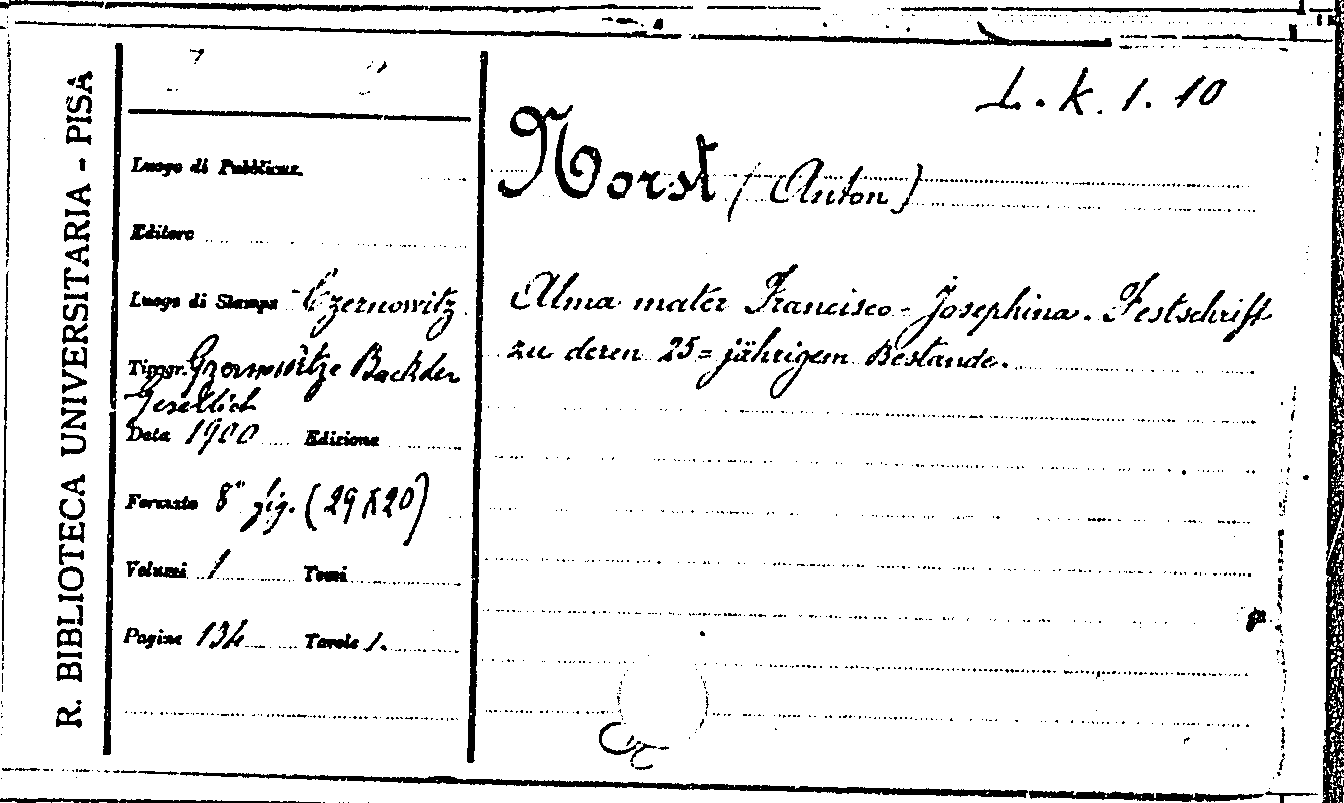 R. BIBLIOTECA UNIVERSITARIA - PISA
L. K. 1. 10
Norst (Anton)
Alma mater Francisco-Josephina. Festschrift
zu deren 25=jährigem Bestande.
Luogo di Pubblicaz.
Editore
Luogo di Stampa Czernowitz
Tipogr. Czernowitze Backder
Gesellich
Data 1900 Edizione
Formato 8° fig. (29X20)
Volumi 1 Tomi
Pagine 134 Tavole 1.